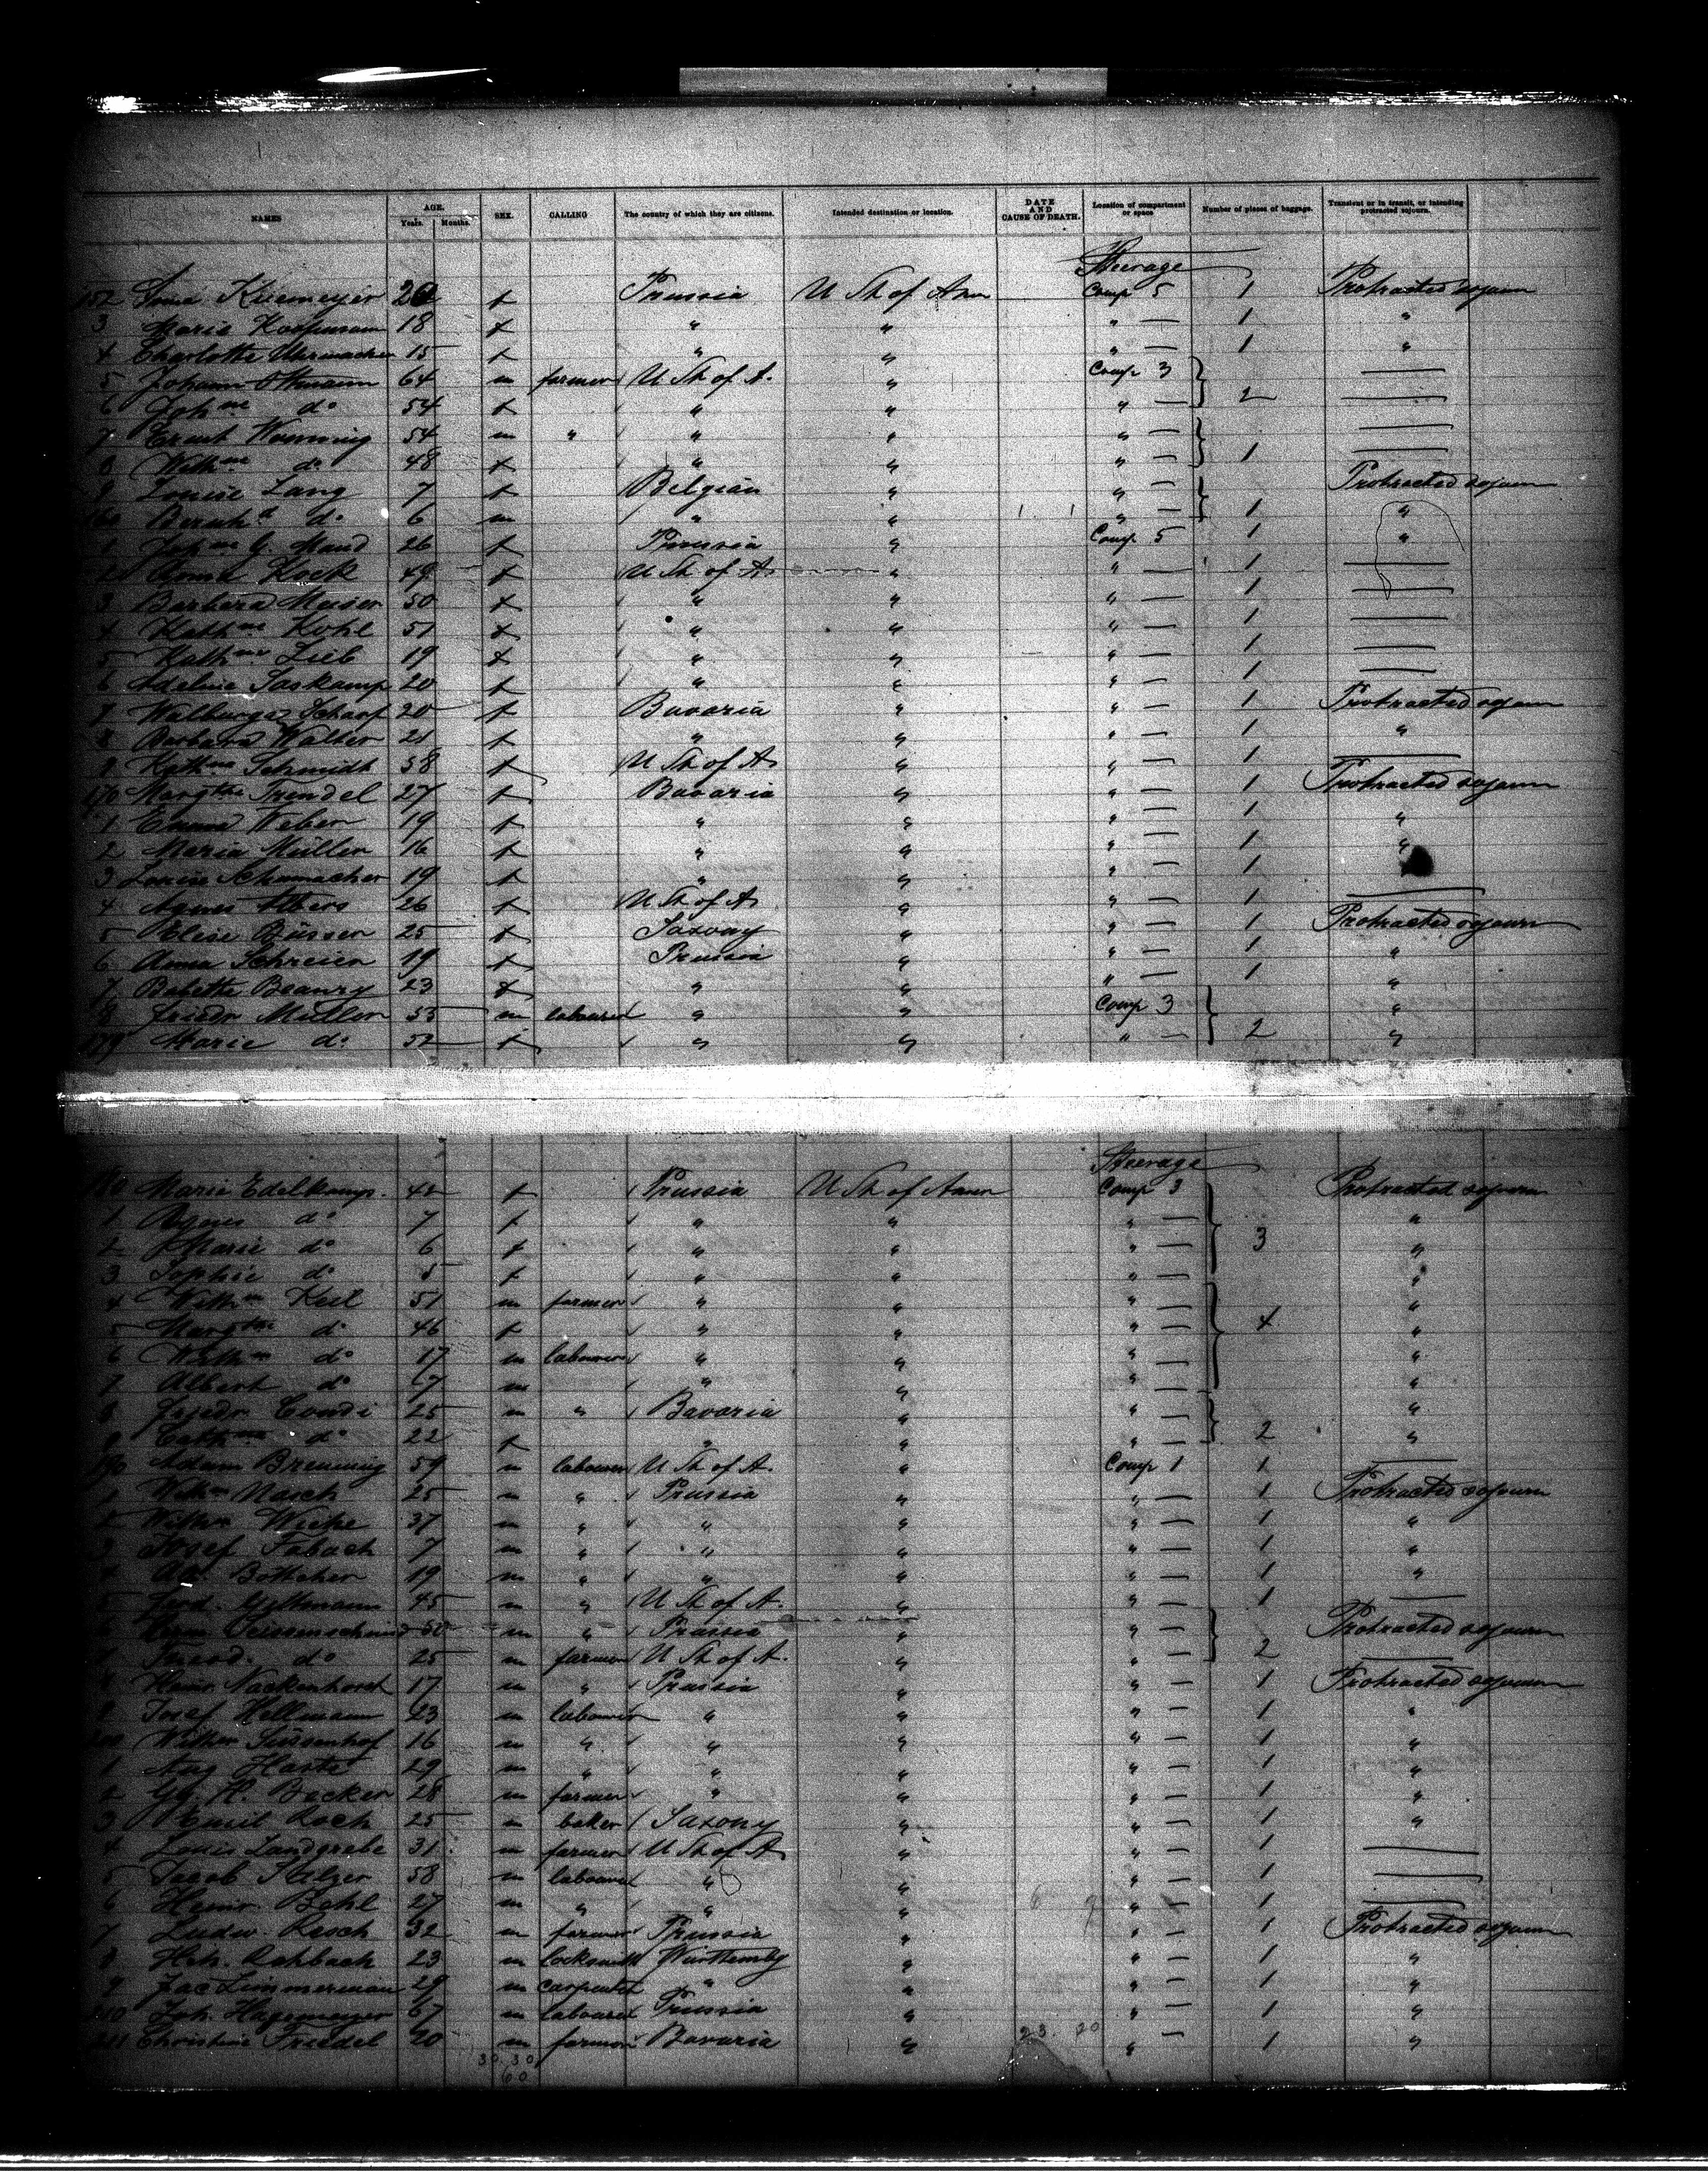 NAMES AGE. Years. Months. SEX. CALLING The country of which they are citizens. Intended destination or location. DATE AND CAUSE OF DEATH. Location of compartment or space Number of pieces of baggage. Transient or in transit, or intending protracted sojourn.
Steerage
152 Kriemeyer f Prussia U St of Am Comp 5 1 Protracted sojourn
3 Marie 18 f " " " — 1 "
4 Charlotte 15 f " " " — 1 "
5 Johann Othmann 64 m farmer U St of A. " Comp 3 —
6 Joh ne do 54 f " " " — 2 —
7 Ernst 54 m " " " " — —
8 Wilh ne do 48 f " " " — 1 —
9 Louise Lang 7 f Belgian " " — Protracted sojourn
160 Bernh d do 6 m " " " — 1 "
1 Joh ne G. Maud 26 f Prussia " Comp 5 1 "
2 Anna Kock 49 f U St of A. " " — 1 —
3 Barbera 50 f " " " — 1 —
4 Kath ne Kohl 51 f " " " — 1 —
5 Kath ne Lieb 19 f " " " — 1 —
6 Adeline Saskamp 20 f " " " — 1 —
7 Walburga Scharf 20 f Bavaria " " — 1 Protracted sojourn
8 Barbara Walter 21 f " " " — 1 "
9 Kath ne Schmidt 58 f U St of A " " — 1 —
170 Marg the Trendel 27 f Bavaria " " — 1 Protracted sojourn
1 Emma Weber 19 f " " " — 1 "
2 Maria Müller 16 f " " " — 1 "
3 Louise Schumacher 19 f " " " — 1
4 Agnes Albers 26 f U St of A " " — 1 —
5 Elise Büsser 25 f Saxony " " — 1 Protracted sojourn
6 Anna Schreier 19 f Prussia " " — 1 "
7 Babette 23 f " " " — 1 "
8 Friedr Müller 53 m labourer " " Comp 3 "
179 Marie do 52 f " " " — 2 "
Steerage
180 Marie Edelkamp. 42 f Prussia U St of Amer Comp 3 Protracted sojourn
1 Agnes do 7 f " " " — "
2 Marie do 6 f " " " — 3 "
3 Sophie do 5 f " " " — "
4 Wilh m Keil 51 m farmer " " " — "
5 Marg the do 46 f " " " — 4 "
6 Wilh m do 17 m labourer " " " — "
7 Albert do 7 m " " " — "
8 Friedr Condi 25 m " Bavaria " " — "
9 Cath ne do 22 f " " " — 2 "
190 Adam Breuning 59 m labourer U St of A. " Comp 1 1 —
1 Wilh m Nasch 25 m " Prussia " " — 1 Protracted sojourn
2 Wilh m Wiehe 37 m " " " " — 1 "
3 Josef Fabach 7 m " " " " — 1 "
4 Bottcher 19 m " " " " — 1 "
5 Ferd. 45 m " U St of A. " " — 1 —
6 Herm 50 m " Prussia " " — Protracted sojourn
7 do 25 m farmer U St of A. " " — 2 —
8 Heinr. Nackenhorst 17 m " Prussia " " — 1 Protracted sojourn
9 Josef Hellmann 23 m labourer " " " — 1 "
200 Wilh m Süssenhof 16 m " " " " — 1 "
1 Aug Harte 29 m " " " " — 1 "
2 H. Backer 28 m farmer " " " — 1 "
3 Emil Roch 25 m baker Saxony " " — 1 "
4 Louis Landgrebe 31 m farmer U St of A " " — 1 —
5 Jacob 58 m labourer " " " — 1 —
6 Heinr. Behl 27 m " " " " — 1 —
7 Ludw. 32 m farmer Prussia " " — 1 Protracted sojourn
8 Hch. Rehbach 23 m locksmith Württemby " " — 1 "
9 Jac Zimmermann 29 m carpenter " " " — 1 "
210 Joh. Hagemeyer 67 m labourer Prussia " " — 1 "
211 Christian Friedel 20 m farmer Bavaria " 23. 20 " — 1 "
30. 30
60